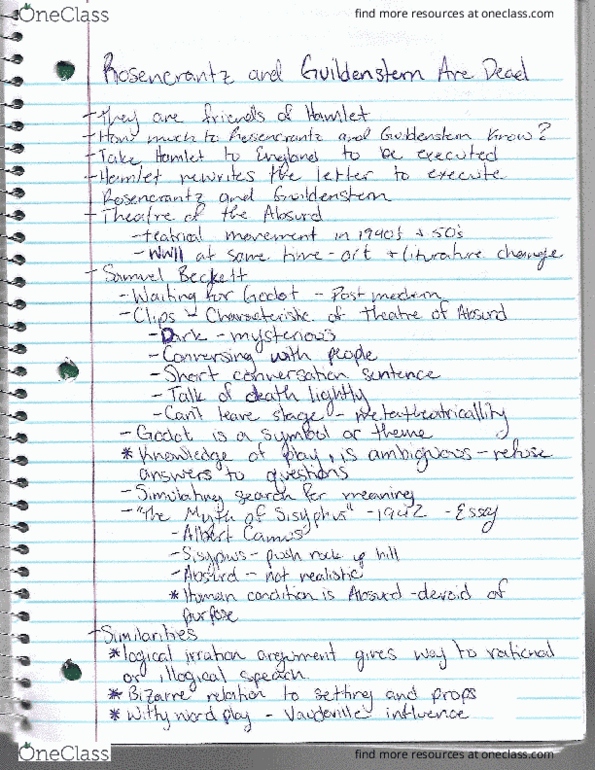 OneClass
find more resources at oneclass.com
Rosencrantz and Guildenstern Are Dead
- They are friends of Hamlet
- How much to Rosencrantz and Guildenstern know?
- Take Hamlet to England to be executed
- Hamlet rewrites the letter to execute
Rosencrantz and Guildenstern
- Theatre of the Absurd
- teatrial movement in 1940's + 50's
- WWII at same time - art + literature change
- Samuel Beckett
- Waiting for Godot - Post modern
- Clips - Characteristic of theatre of Absurd
- Dark - mysterious
- Conversing with people
- Short conversation sentence
- Talk of death lightly
- Can't leave stage - metatheatricallity
- Godot is a symbol or theme
* Knowledge of play, is ambiguous - refuse
answers to questions
- Simulating search for meaning
- "The Myth of Sisyphus" - 1942 - Essay
- Albert Camus
- Sisypus - push rock up hill
- Absurd - not realistic
* Human condition is Absurd - devoid of
purpose
- Similarities
* logical argument gives way to rational
or illogical speach
* Bizarre relation to setting and props
* Witty word play - Vaudeville influence
OneClass
find more resources at oneclass.com